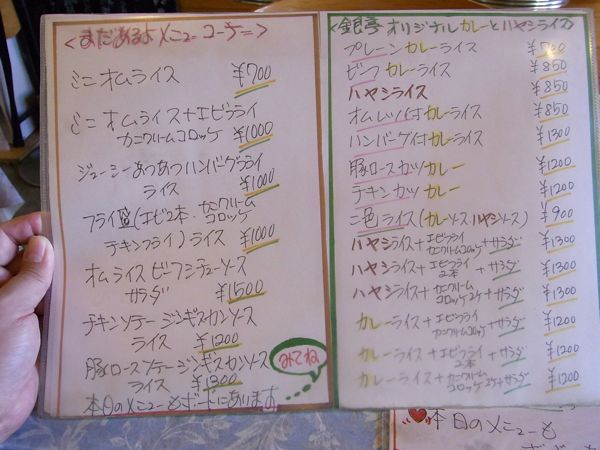 <まだあるよメニューコーナー>
ミニオムライス ¥700
ミニオムライス+エビフライ
カニクリームコロッケ ¥1000
ジューシーあつあつハンバーグフライ
ライス ¥1000
フライ盛(エビ2本・カニクリーム
コロッケ
チキンフライ)ライス ¥1000
オムライスビーフシチューソース
サラダ ¥1500
チキンソテージンギスカンソース
ライス ¥1200
豚ロースソテージンギスカンソース
ライス ¥1300
本日のメニューもボードにあります
みてね
<銀亭オリジナルカレーとハヤシライス>
プレーンカレーライス ¥700
ビーフカレーライス ¥850
ハヤシライス ¥850
オムレツ付カレーライス ¥850
ハンバーグ付カレーライス ¥1300
豚ロースカツカレー ¥1200
チキンカツカレー ¥1200
二色ライス(カレーソースハヤシソース) ¥900
ハヤシライス+エビフライ
カニクリームコロッケ+サラダ ¥1300
ハヤシライス+エビフライ
2本+サラダ ¥1300
ハヤシライス+カニクリーム
コロッケ2ケ+サラダ ¥1300
カレーライス+エビフライ
カニクリームコロッケ+サラダ ¥1200
カレーライス+エビフライ
2本+サラダ ¥1200
カレーライス+カニクリーム
コロッケ2ケ+サラダ ¥1200
本日のメニューも